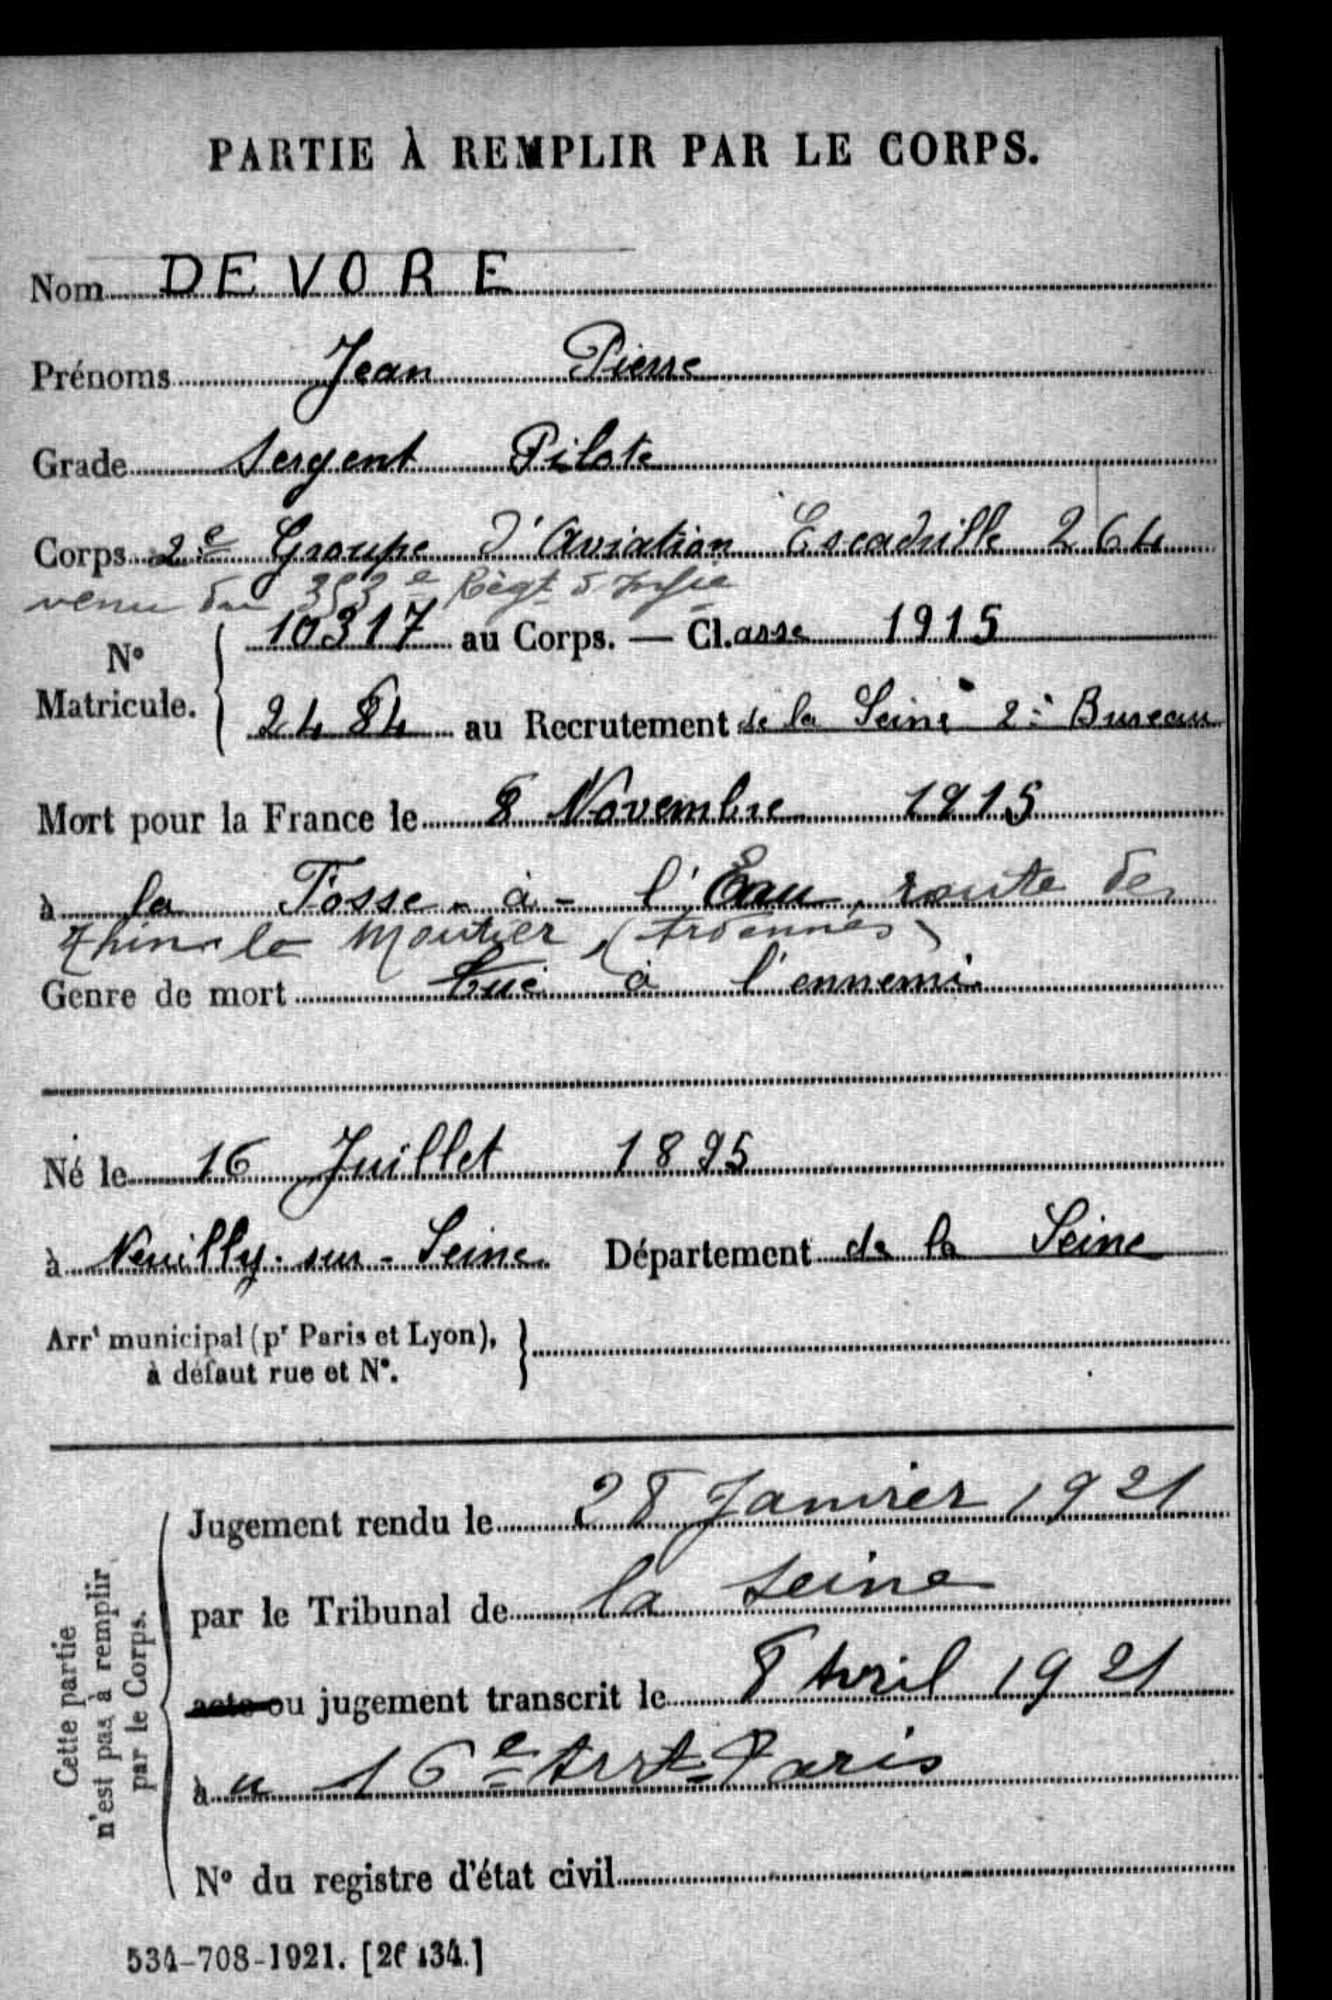 PARTIE À REMPLIR PAR LE CORPS.
Nom DEVORE
Prénoms Jean Pierre
Grade Sergent Pilote
Corps 2e Groupe d'Aviation Escadrille 264
venu du 353e Regt d'Infie
No Matricule. 10317 au Corps. — Cl.asse 1915
2484 au Recrutement de la Seine 2e Bureau
Mort pour la France le 8 Novembre 1915
à la Fosse-à-l'Eau, route de
Thin le Moutier, (Ardennes)
Genre de mort tué à l'ennemi
Né le 16 Juillet 1895
à Neuilly-sur-Seine. Département de la Seine
Arrt municipal (pr Paris et Lyon),
à défaut rue et No.
Cette partie
n'est pas à remplir
par le Corps.
Jugement rendu le 28 Janvier 1921
par le Tribunal de la Seine
acte ou jugement transcrit le 8 Avril 1921
à u 16e Arrt Paris
No du registre d'état civil
534-708-1921. [26434.]